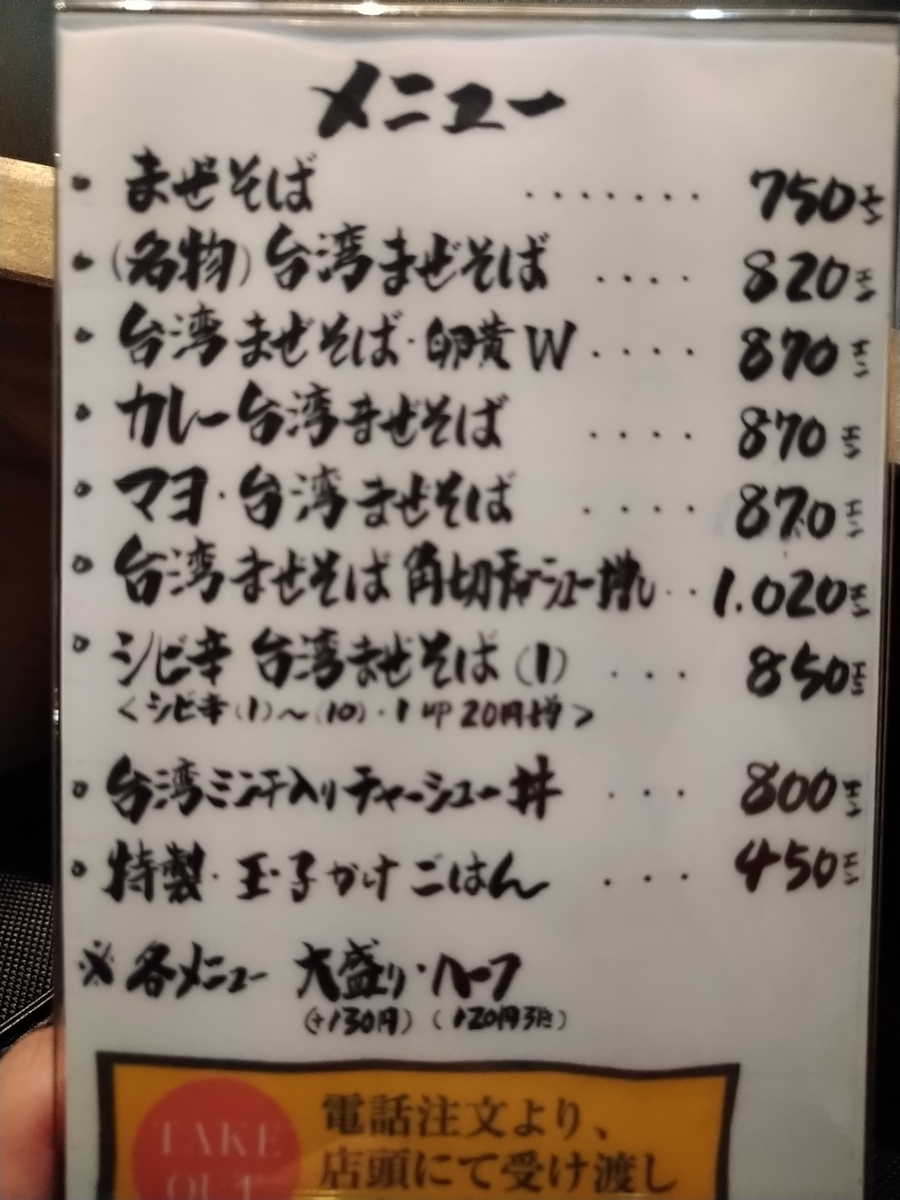 メニュー
・まぜそば ・・・・・・・ 750エン
・(名物)台湾まぜそば ・・・・ 820エン
・台湾まぜそば・卵黄W・・・・ 870エン
・カレー台湾まぜそば ・・・・ 870エン
・マヨ・台湾まぜそば ・・・・ 870エン
・台湾まぜそば角切チャーシュー増し・・1.020エン
・シビ辛 台湾まぜそば(1) ・・・ 850エン
<シビ辛(1)~(10)・1UP20円増>
・台湾ミンチ入りチャーシュー丼 ・・・ 800エン
・特製・玉子かけごはん ・・・ 450エン
※各メニュー 大盛り・ハーフ
(+130円) (120円引)
TAKE
OUT
電話注文より、
店頭にて受け渡し